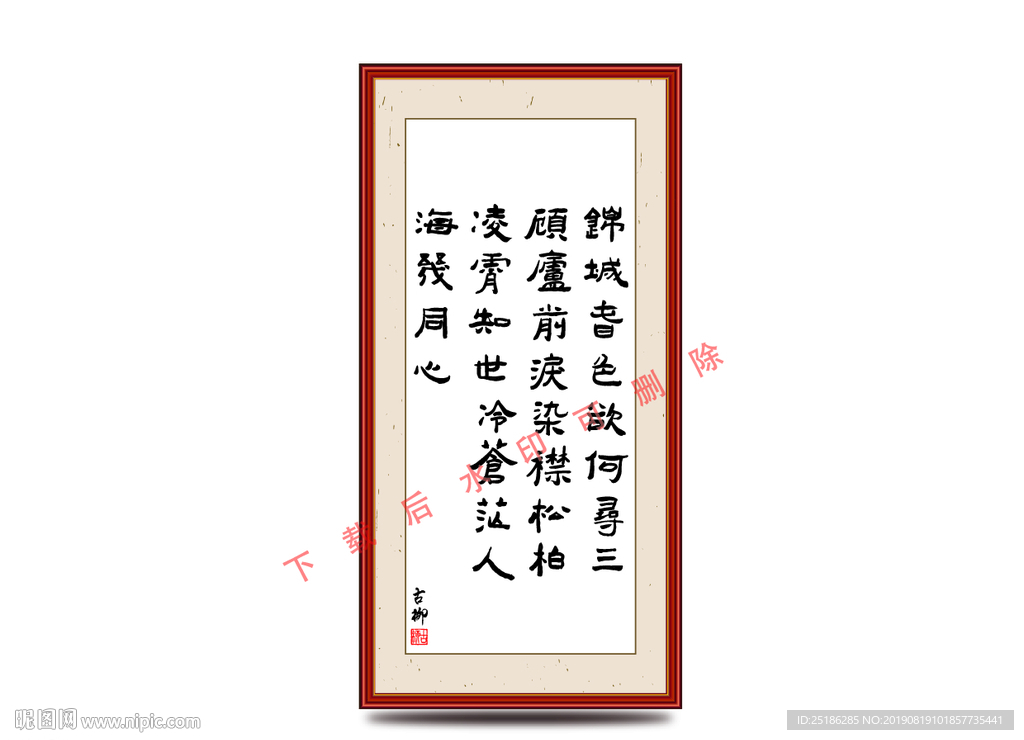 錦城春色欲何尋三
顧廬前淚染襟松柏
凌霄知世冷蒼茫人
海幾同心
古柳
下载后水印可删除
昵图网 www.nipic.com
ID:25186285 NO:20190819101857735441